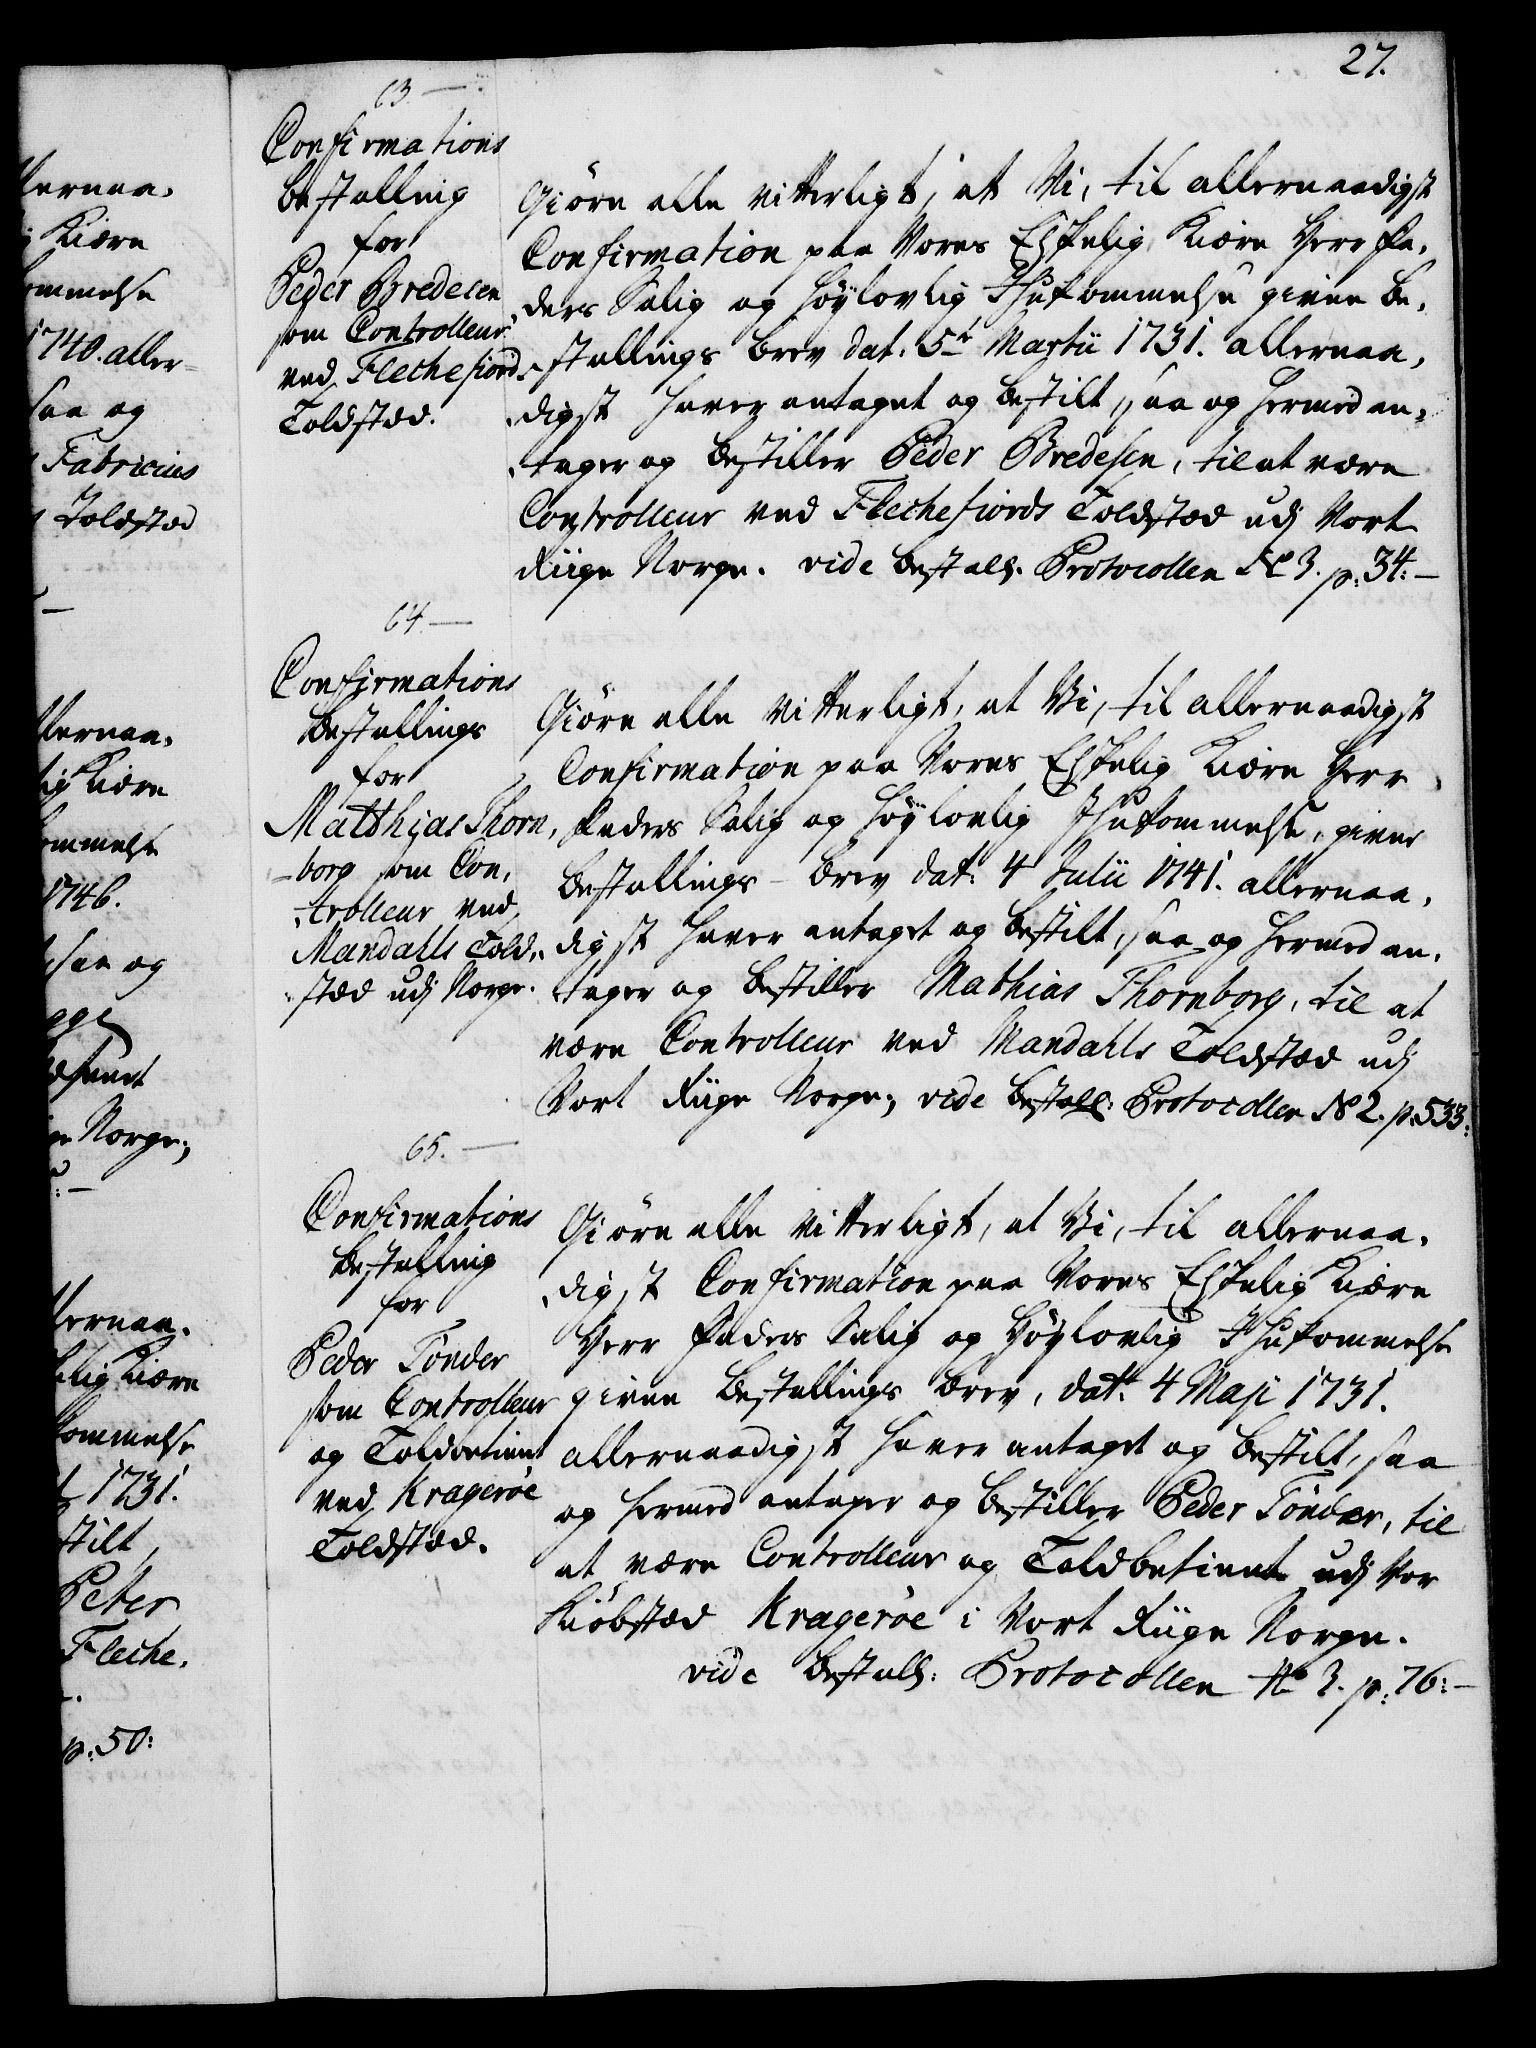 27.
63. —
Confirmations
Bestalling
for
Peder Bredesen
som Controlleur
ved Flechefiords
Toldstæd.
Giøre alle vitterligt, at Vi, til allernaadigst
Confirmation paa Vores Elskelig Kiære Herr Fa-
ders Salig og Høylovlig Ihukommelse givne Be-
stallings Brev dat: 5te Martii 1731. allernaa-
digst haver antaget og bestilt, saa og hermed an-
tager og bestiller Peder Bredesen, til at være
Controlleur ved Flechefiords Toldstæd udj Vort
Riige Norge. vide Bestall: Protocollen No 3. p: 34: —
64. —
Confirmations
Bestallings
for
Matthias Thorn-
borg som Con-
trolleur ved
Mandahls Told-
stæd udj Norge.
Giøre alle vitterligt, at Vi, til allernaadigst
Confirmation paa Vores Elskelig Kiære Herr
Faders Salig og Høylovlig Ihukommelse, givne
Bestallings-Brev dat: 4 Julii 1741. allernaa-
digst haver antaget og bestilt, saa og hermed an-
tager og bestiller Mathias Thornborg, til at
være Controlleur ved Mandahls Toldstæd udj
Vort Riige Norge, vide Bestall: Protocollen No 2. p: 533:
65. —
Confirmations
Bestalling
for
Peder Tönder
som Controlleur
og Toldbetient
ved Kragerøe
Toldstæd.
Giøre alle vitterligt, at Vi, til allernaa-
digst Confirmation paa Vores Elskelig Kiære
Herr Faders Salig og Høylovlig Ihukommelse
givne Bestallings Brev, dat: 4 Maji 1731.
allernaadigst haver antaget og bestilt, saa
og hermed antager og bestiller Peder Tönder, til
at være Controlleur og Toldbetient udj Vor
Kiøbstæd Kragerøe i Vort Riige Norge.
vide Bestall: Protocollen No 3. p: 76: —